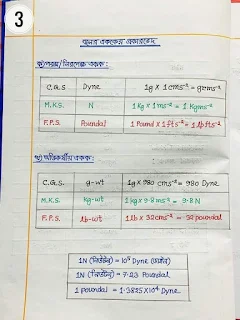 3
বলের এককের প্রকারভেদ
ক) পরম/নিরপেক্ষ একক:
C.G.S. Dyne 1g x 1cms⁻² = gcms⁻²
M.K.S. N 1Kg x 1ms⁻² = 1Kgms⁻²
F.P.S. Poundal 1 Pound x 1fts⁻² = 1lbfts⁻²
খ) অভিকর্ষীয় একক:
C.G.S. g-wt 1g x 980 cms⁻² = 980 Dyne
M.K.S. kg-wt 1kg x 9.8ms⁻² = 9.8N
F.P.S. lb-wt 1lb x 32cms⁻² = 32 poundal
1N (নিউটন) = 10⁵ Dyne (ডাইন)
1N (নিউটন) = 7.23 Poundal
1 poundal = 1.3825x10⁴ Dyne